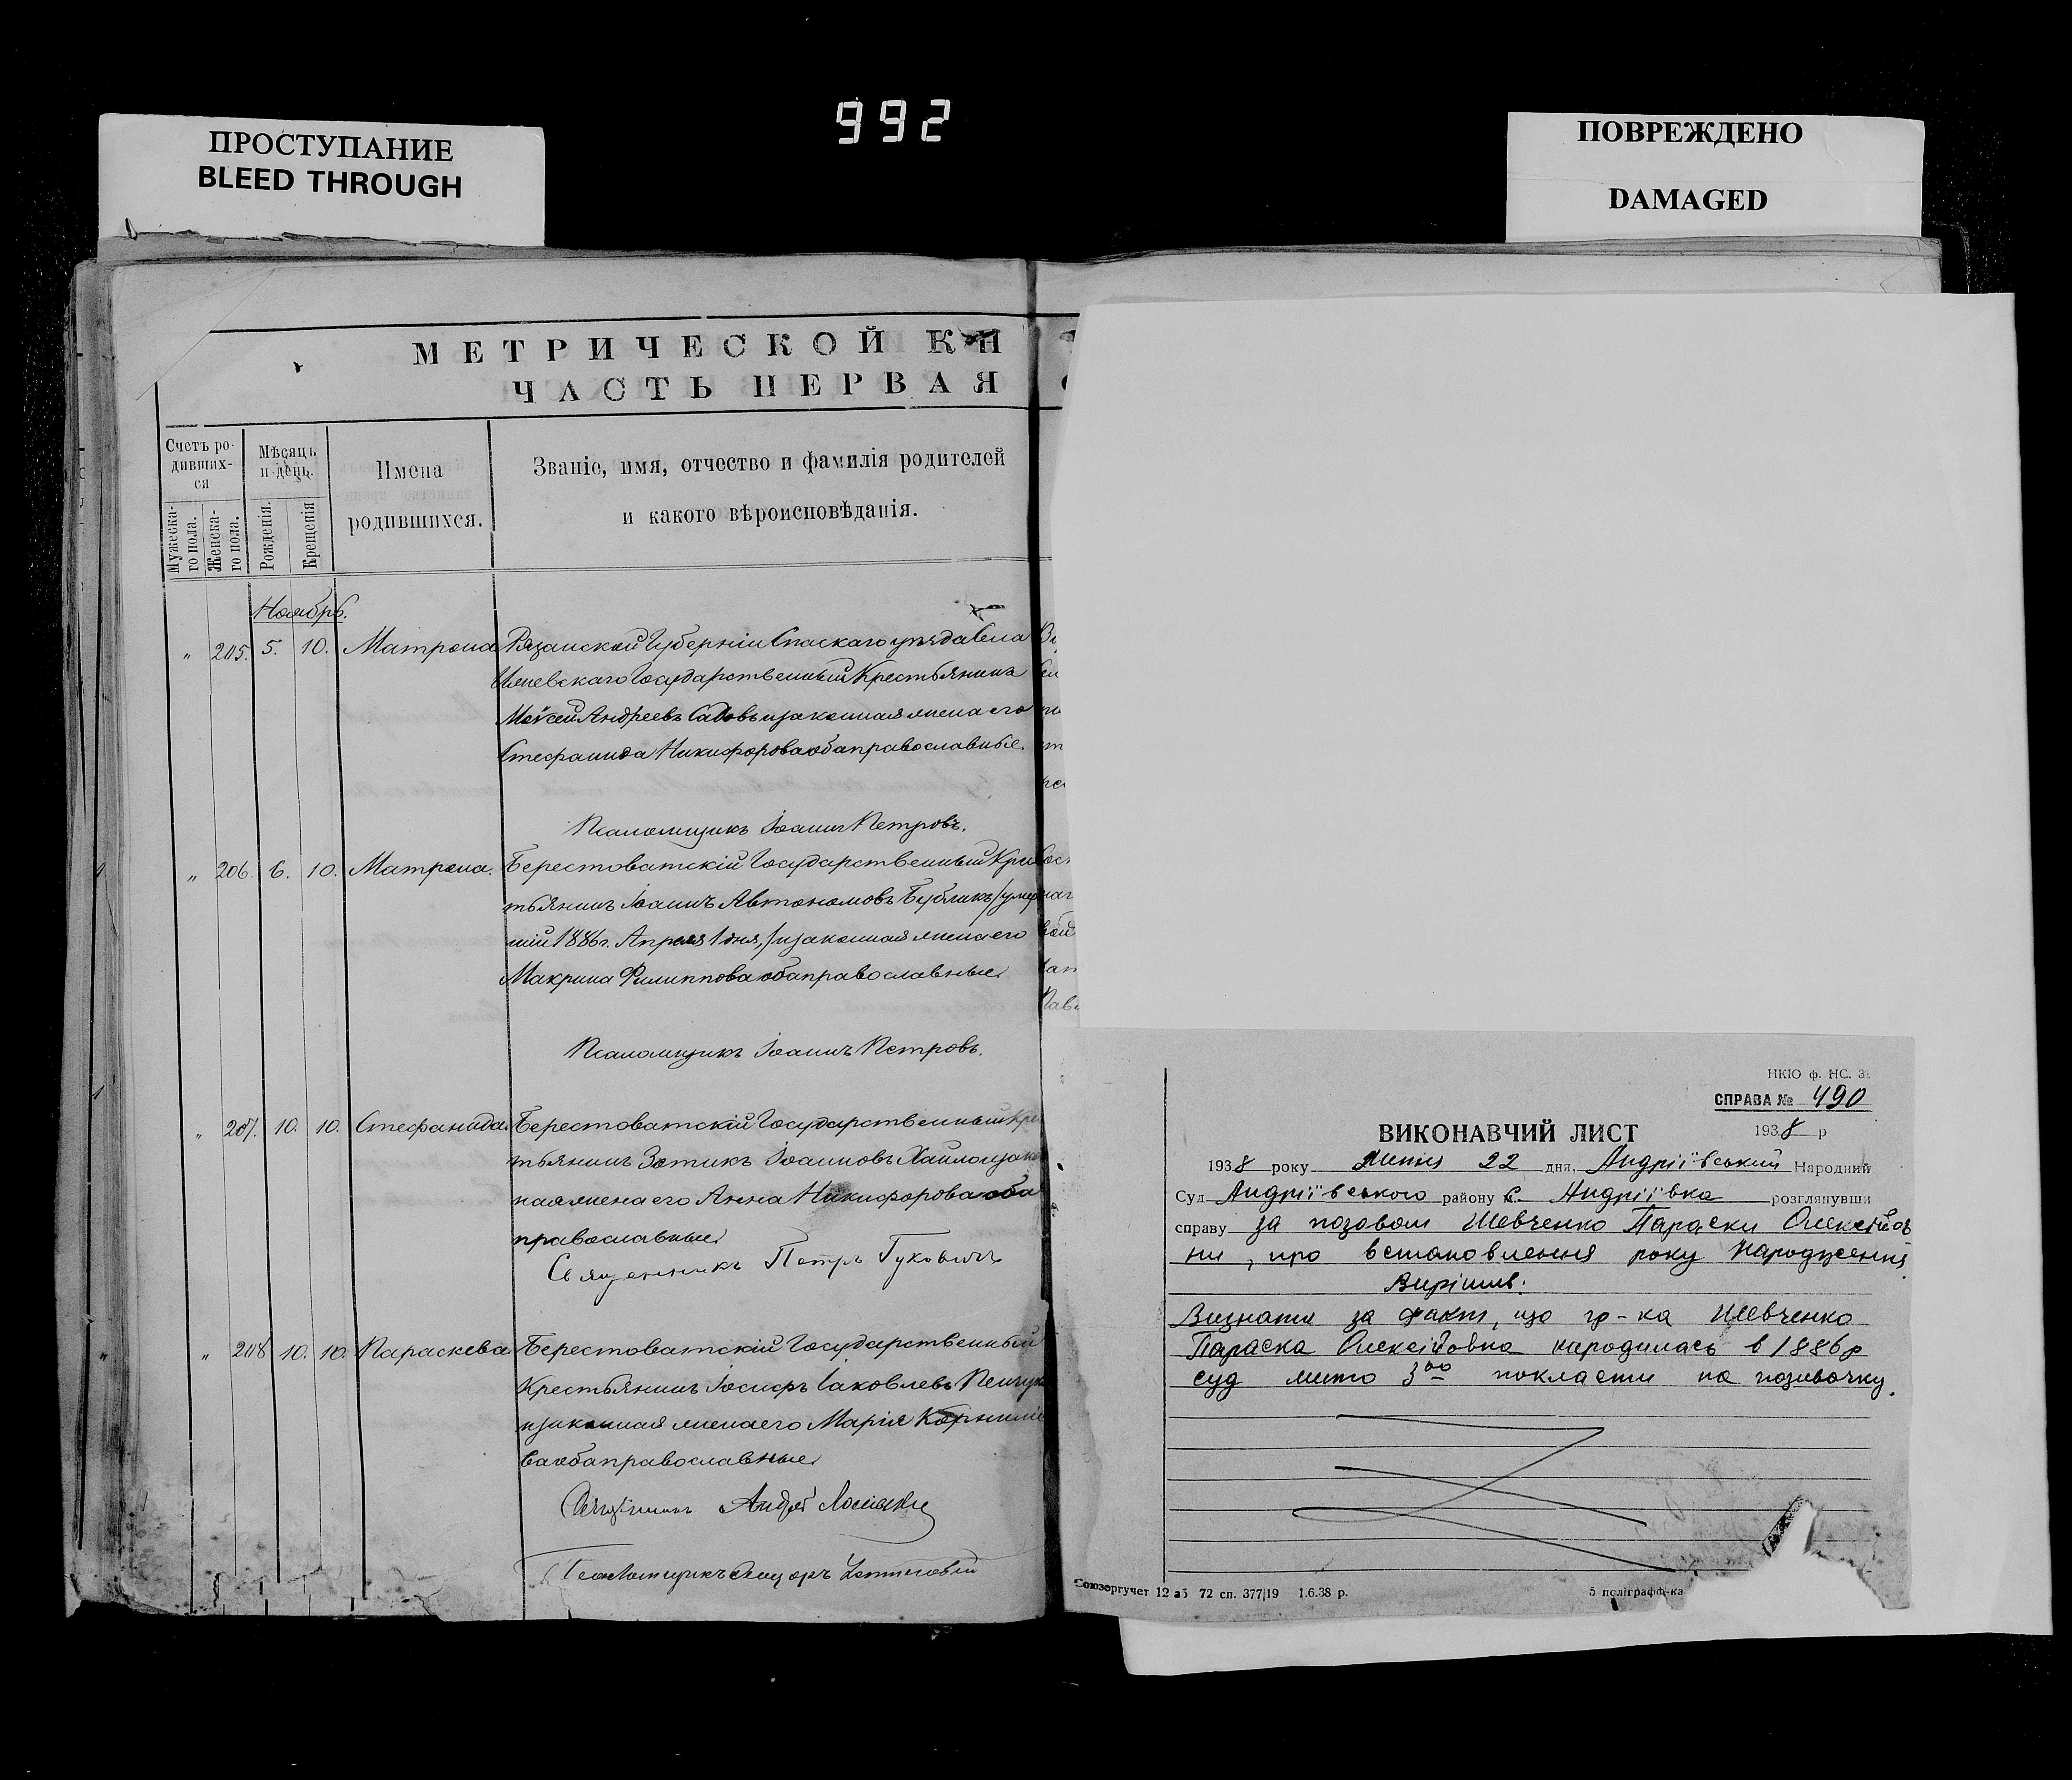 992
ПРОСТУПАНИЕ
BLEED THROUGH
ПОВРЕЖДЕНО
DAMAGED
МЕТРИЧЕСКОЙ КН
ЧАСТЬ ПЕРВАЯ
Счетъ ро-
дивших-
ся
Мужеска-
го пола.
Женска-
го пола.
Мѣсяцъ
и день.
Рожденія.
Крещенія
Имена
родившихся.
Званіе, имя, отчество и фамилія родителей
и какого вѣроисповѣданія.
Ноябрь.
" 205. 5. 10. Матрона Рязанской Губерніи Спаскаго уѣзда Села
Государственный Крестьянинъ
Моѵсей Андреевъ Садовъ и законная жена его
Стефанида Никифорова оба православные.
Псаломщикъ Іоаннъ Петровъ.
" 206. 6. 10. Матрона. Берестоватскій Государственный Крес
тьянинъ Іоаннъ Автономовъ Бубликъ /умер
шій 1886 г. Апреля 1 дня,/ и законная жена его
Макрина Филиппова оба православные
Псаломщикъ Іоаннъ Петровъ.
" 207. 10. 10. Стефанида. Берестоватскій Государственный Кре
тьянинъ Зотикъ Іоанновъ Хайло и закон
ная жена его Анна Никифорова оба
православные
Священникъ Петръ Гуковичъ
" 208 10. 10. Параскева. Берестоватскій Государственный
Крестьянинъ Іосифъ Іаковлевъ
и законная жена его Марія Корнилie
ва оба православные
Священникъ Андрей
Псаломщикъ
НКЮ ф. НС. 3
СПРАВА № 490
ВИКОНАВЧИЙ ЛИСТ
1938 р
1938 року 22 дня, Андріївський Народний
Суд Андріївського району с. Андріївка розглянувши
справу за позовом Шевченко Параски Олексіїв
ни, про встановлення року народження
Вирішив:
Визнати за факт, що гр-ка Шевченко
Параска Олексіївна народилась в 1886 р
суд мито 3 00 покласти на позивачку.
Союзоргучет 12 аб 72 сп. 377|19 1.6.38 р.
5 поліграфф-ка